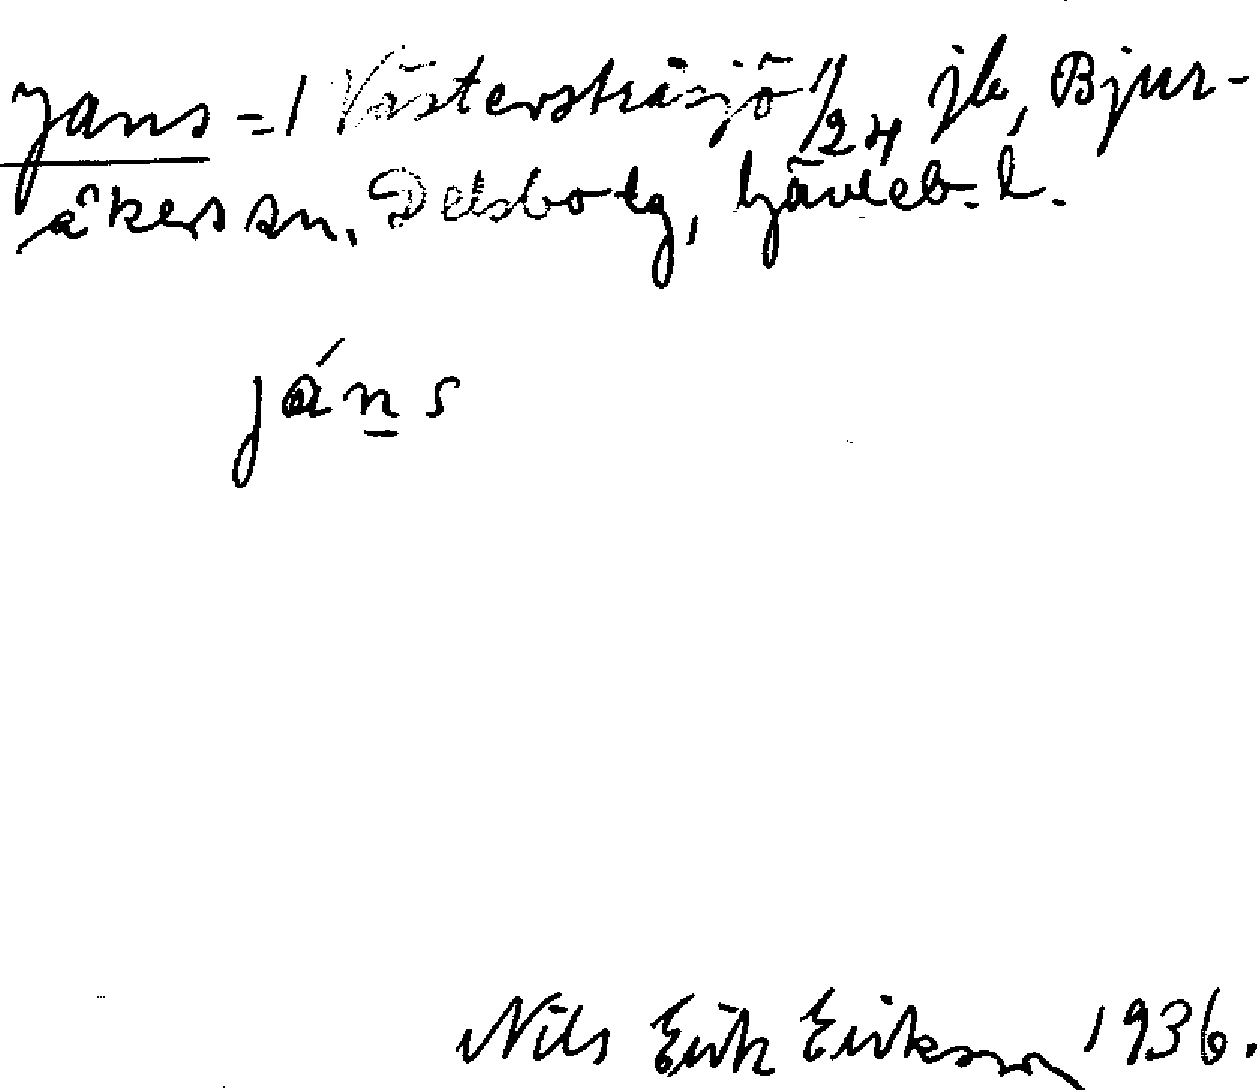 Jans = / Västerstråsjö 1/24 jb, Bjur-
åkers sn. Delsbo tg, Gävleb. l.
jáns
Nils Erik Eriksson 1936.